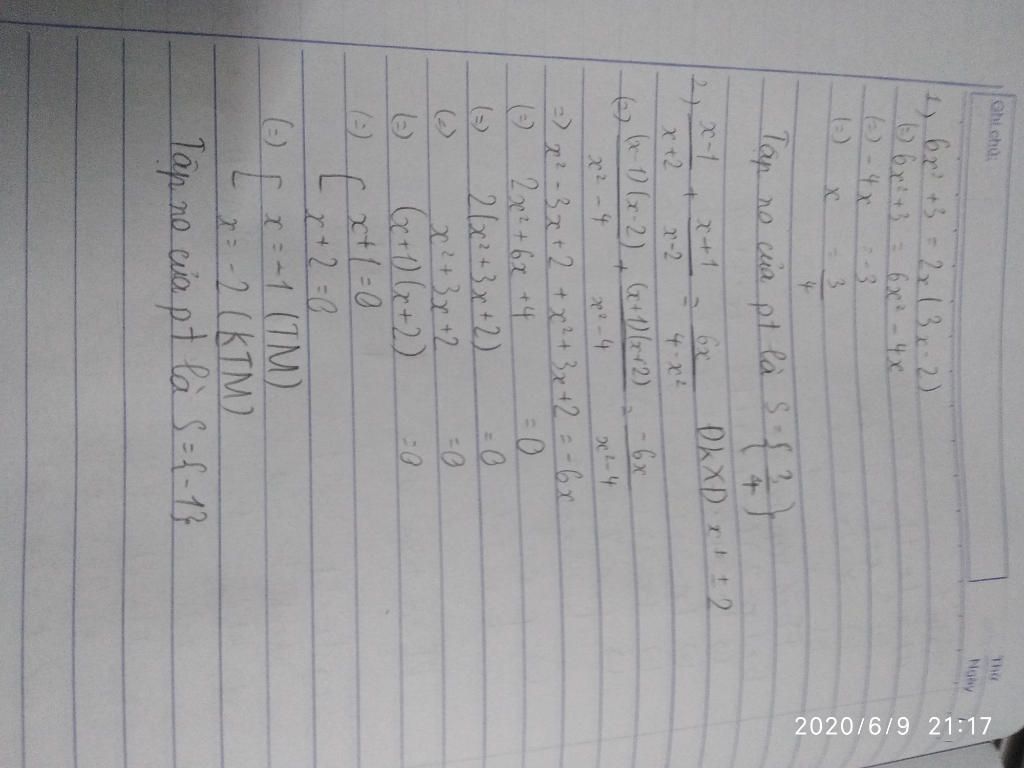 Ghi chú:
Thứ
Ngày
1) 6x² + 3 = 2x(3x - 2)
(=) 6x² + 3 = 6x² - 4x
(=) - 4x = -3
(=) x = 3/4
Tập no của pt là S = {3/4}
2) (x-1)/(x+2) + (x+1)/(x-2) = 6x/(4-x²) ĐkXĐ: x ≠ ±2
(=) (x-1)(x-2)/(x²-4) + (x+1)(x+2)/(x²-4) = -6x/(x²-4)
=) x² - 3x + 2 + x² + 3x + 2 = -6x
(=) 2x² + 6x + 4 = 0
(=) 2(x² + 3x + 2) = 0
(=) x² + 3x + 2 = 0
(=) (x+1)(x+2) = 0
(=) [ x+1 = 0
[ x+2 = 0
(=) [ x = -1 (TM)
[ x = -2 (KTM)
Tập no của pt là S = {-1}
2020/6/9 21:17